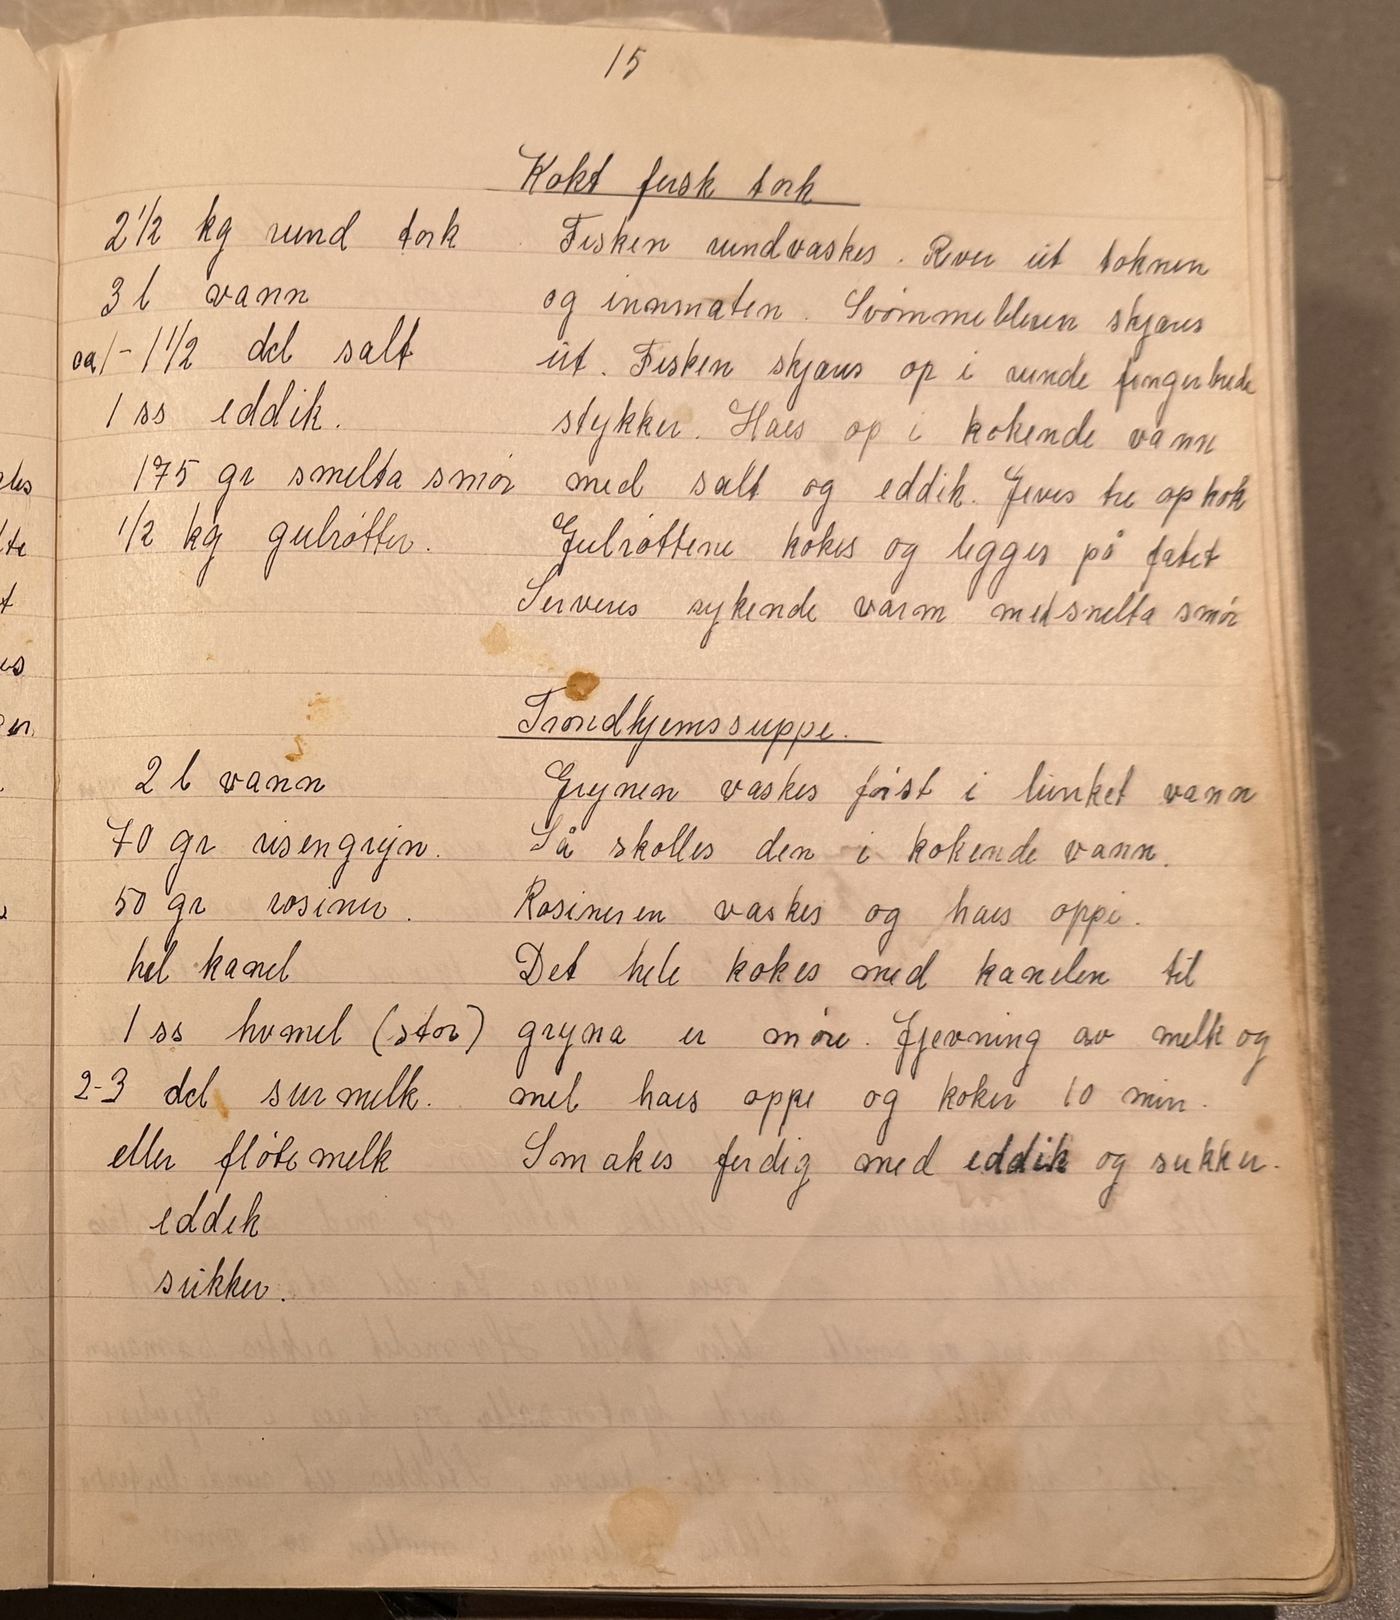 15
Kokt fersk tork
2 1/2 kg rund tork
3 l vann
ca 1 - 1 1/2 del salt
1 ss eddik.
175 gr smelta smør
1/2 kg gulrøtter.
Fisken rundvaskes. River ut toknen
og innmaten. Svømmebleren skjæres
ut. Fisken skjæres op i runde fingerbrede
stykker. Haes op i kokende vann
med salt og eddik. Gives tre opkok
Gulrøttene kokes og legges på fatet
Serveres rykende varm med smelta smør
Trondhjemssuppe.
2 l vann
70 gr risengryn.
50 gr rosiner.
hel kanel
1 ss hvmel (stor)
2-3 del surmelk.
eller fløtemelk
eddik
sukker.
Grynen vaskes først i lunket vann
Så skolles den i kokende vann.
Rosineren vaskes og haes oppi.
Det hele kokes med kanelen til
gryna er møre. Jjevning av melk og
mel haes oppe og koker 10 min.
Smakes ferdig med eddik og sukker.